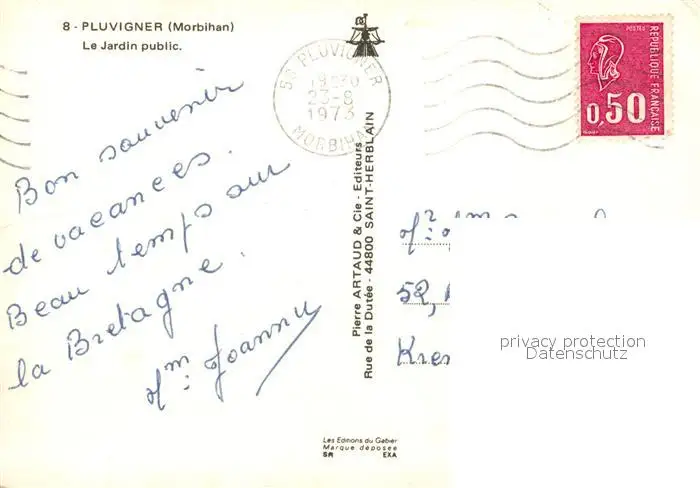 8 - PLUVIGNER (Morbihan)
Le Jardin public.
Bon souvenir
de vacances.
Beau temps sur
la Bretagne.
56 PLUVIGNER
23-8
1973
MORBIHAN
Pierre ARTAUD & Cie - Editeurs
Rue de la Dutée - 44800 SAINT-HERBLAIN
POSTES
REPUBLIQUE FRANÇAISE
0,50
52,
privacy protection
Datenschutz
Les Editions du Gabier
Marque déposée
SR EXA